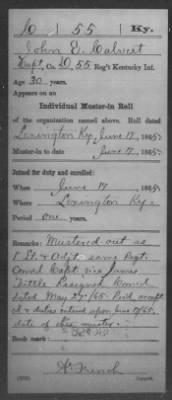 C | 55 | Ky.
John E. Calvert
Capt, Co. D, 55 Reg't Kentucky Inf.
Age 30 years.
Appears on an
Individual Muster-in Roll
of the organization named above. Roll dated
Lexington Ky, June 17, 1865.
Muster-in to date June 17, 1865.
Joined for duty and enrolled:
When June 17, 186 .
Where Lexington Ky.
Period one years.
Remarks: Mustered-out as
1 Lt. & Adjt. same Regt.
Comd Capt. vice James
Tittle Resigned Comd
dated May 27/65.
& duties entered upon June 17/65,
date of this muster.
Book mark:
French
Copyist.